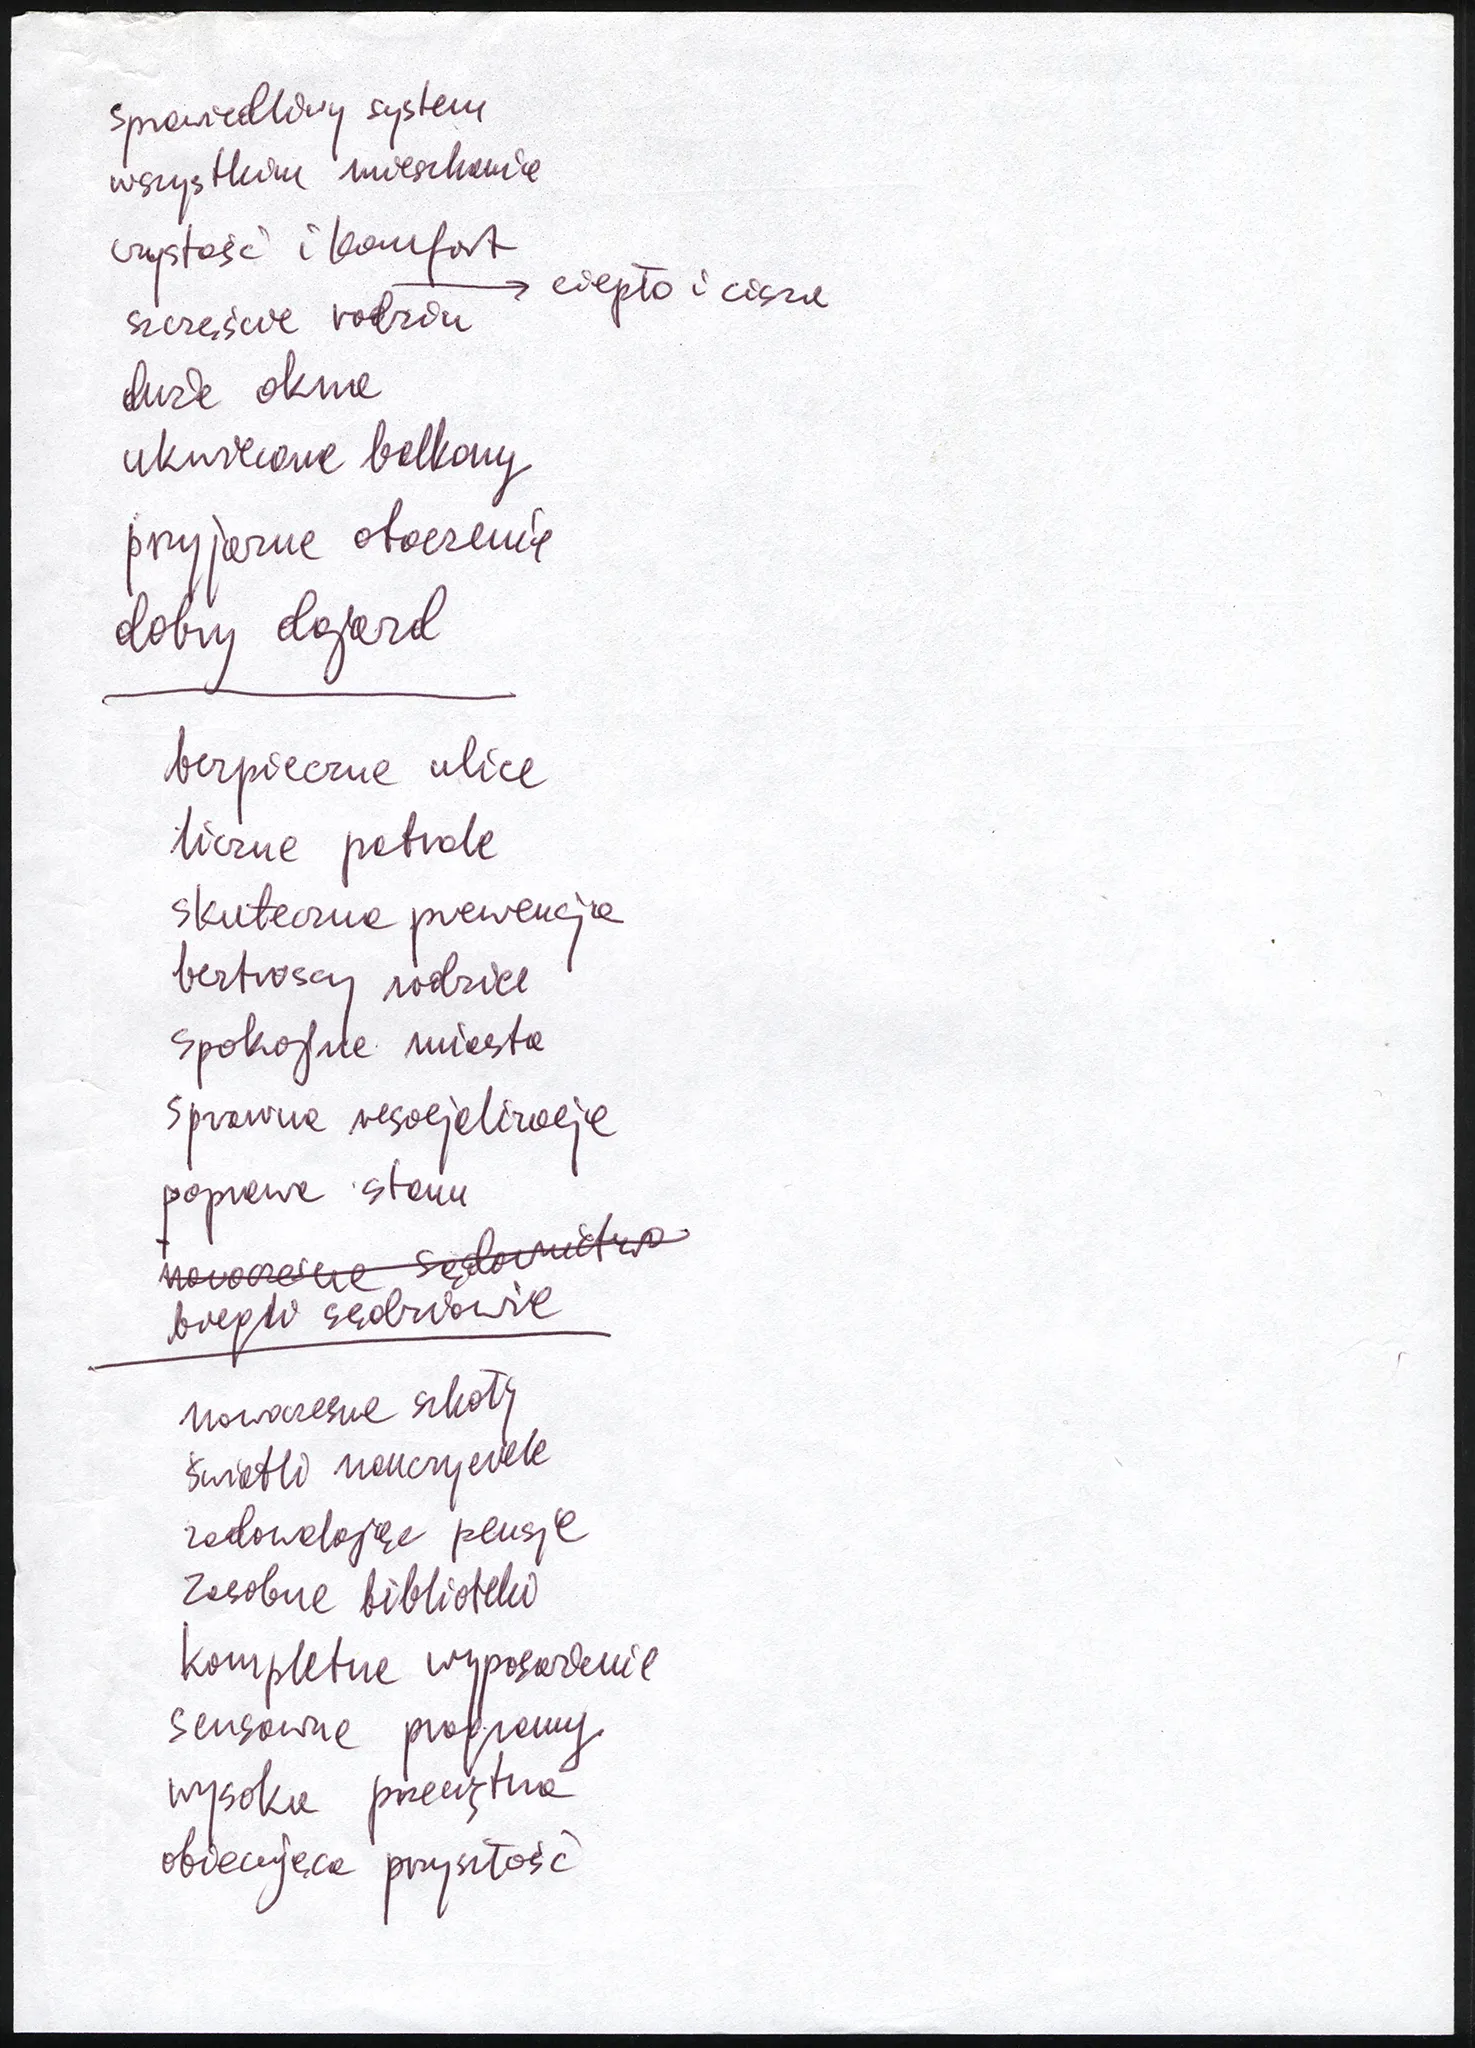 sprawiedliwy system
wszystkim mieszkania
czystość i komfort
→ ciepło i cisza
szczęście rodzin
duże okna
ukwiecone balkony
przyjazne otoczenie
dobry dojazd
bezpieczne ulice
liczne patrole
skuteczna prewencja
beztroscy rodzice
spokojne miasta
sprawna resocjalizacja
poprawa stanu
nowoczesne sądownictwo
biegli sędziowie
nowoczesne szkoły
światli nauczyciele
zadowalające pensje
zasobne biblioteki
kompletne wyposażenie
sensowne programy
wysoka przeciętna
obiecująca przyszłość